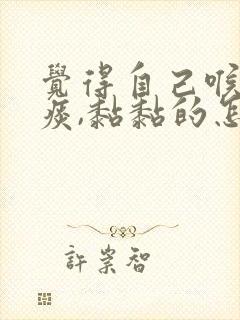 覺得自己喉
痰,黏黏的怎
許崇智